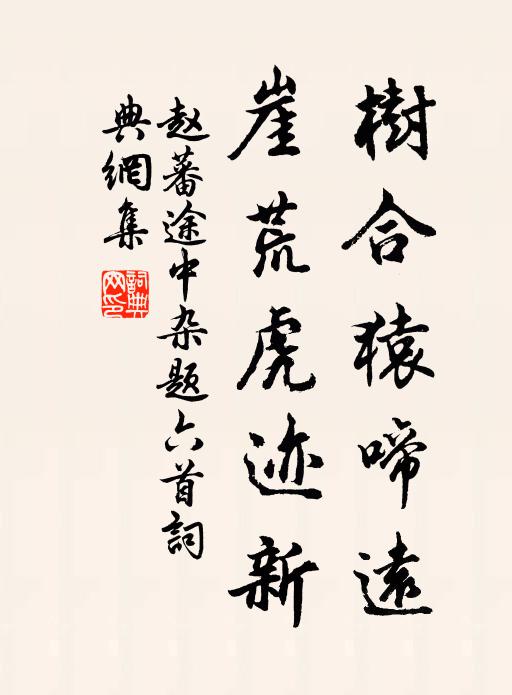 樹合猿啼遠
崖荒虎迹新
赵蕃途中杂题六首詞
典網集
詞典网印